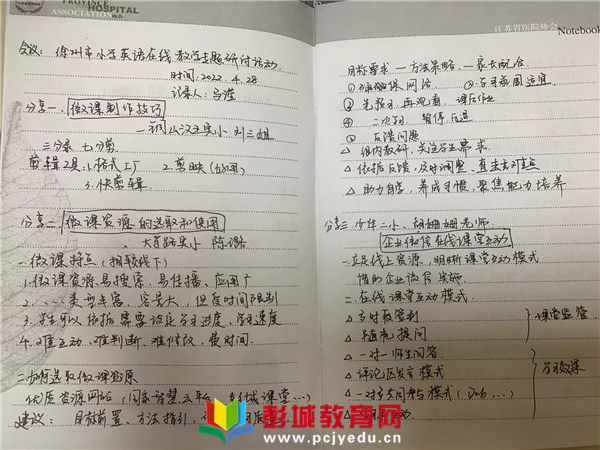 PROVINCE
HOSPITAL
ASSOCIATION
会议: 徐州市小学英语在线教学主题研讨活动
时间: 2022. 4. 28
记录人: 马滢
分享一、微课制作技巧
三分录 七分剪
剪辑工具: 1. 格式工厂 2. 剪映
3. 快剪辑
分享二、微课资源的选取和使用
大
一. 微课特点 (相较线下)
1. 微课资源易搜索、易传播、应用广
类型丰富、容量大, 但有时间限制
3. 学生可以依据需要设定学习进度、学习速度
4. 难互动、难判断、难情改、费时间.
二. 如何选取微课资源
优质资源网站 (国家智慧云平台、 城课堂...)
建议: 目标前置、方法指引,
江苏省医院协会
Notebook
目标要求 — 方法策略 — 家长配合
① 确保网络 ② 学习氛围适宜
③ 先预习 再观看 课后作业
④ 二次学习 暂停、反复
⑤ 反馈问题
△ 组内教研, 关注学生需求
△ 依据反馈, 及时调整、直击重难点
△ 助力自学, 养成习惯 聚焦能力培养
分享三、少年二小、胡姗姗老师
企业微信在线课堂互动
一. 立足线上资源, 明晰课堂互动模式
借助企业微信实施
二. 在线课堂互动模式
△ 多时段签到
△ 提问
课堂监管
△ 一对一师生问答
△ 评论区发言模式
△ 一对多共同指导模式
学习效果
△ 互动
彭城教育网
www.pcjyedu.cn